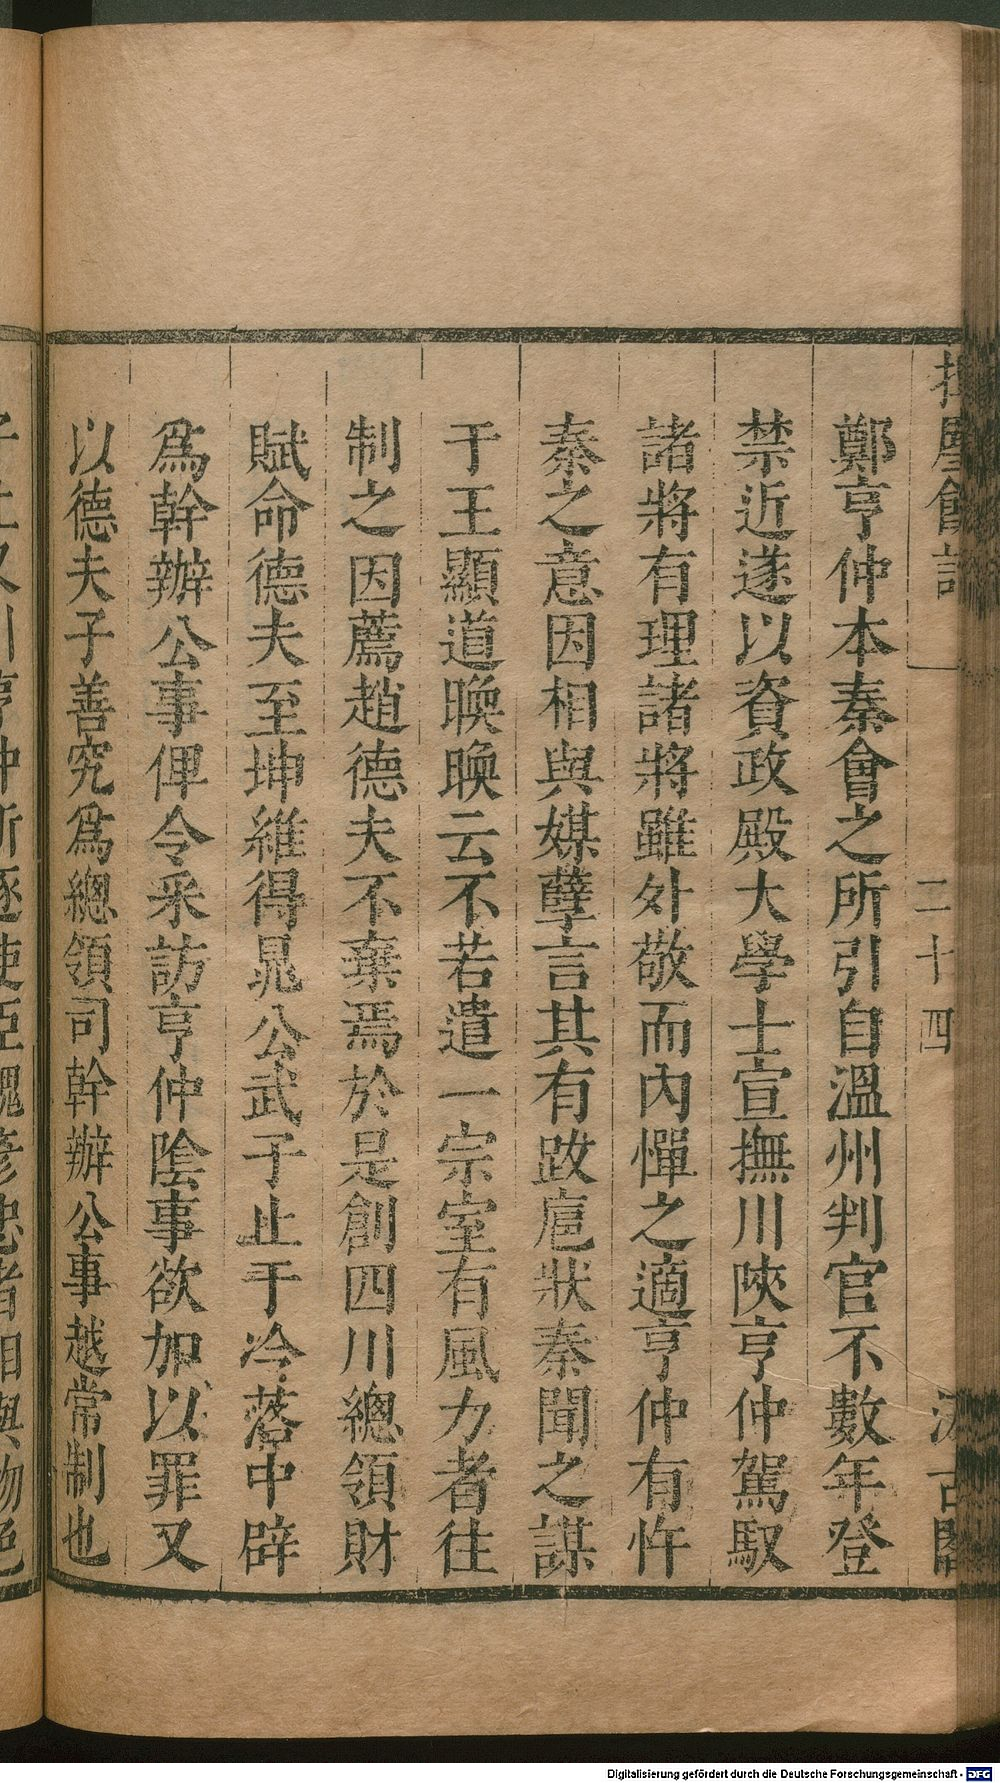 會
二十四
古閣
鄭亨仲本秦會之所引自溫州判官不數年登
禁近遂以資政殿大學士宣撫川陝亨仲駕馭
諸將有理諸將雖外敬而內憚之適亨仲有忤
秦之意因相與媒孽言其有跋扈狀秦聞之謀
于王顯道㬇㬇云不若遣一宗室有風力者往
制之因薦趙德夫不棄焉於是創四川總領財
賦命德夫至坤維得晁公武子止于冷落中辟
爲幹辦公事俾令采訪亨仲陰事欲加以罪又
以德夫子善究爲總領司幹辦公事越常制也
Digitalisierung gefördert durch die Deutsche Forschungsgemeinschaft - DFG